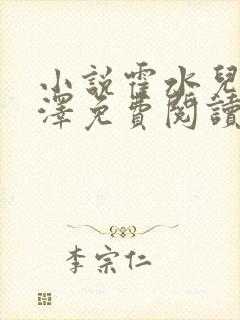 小說霍水兒
澤免費閱讀
李宗仁